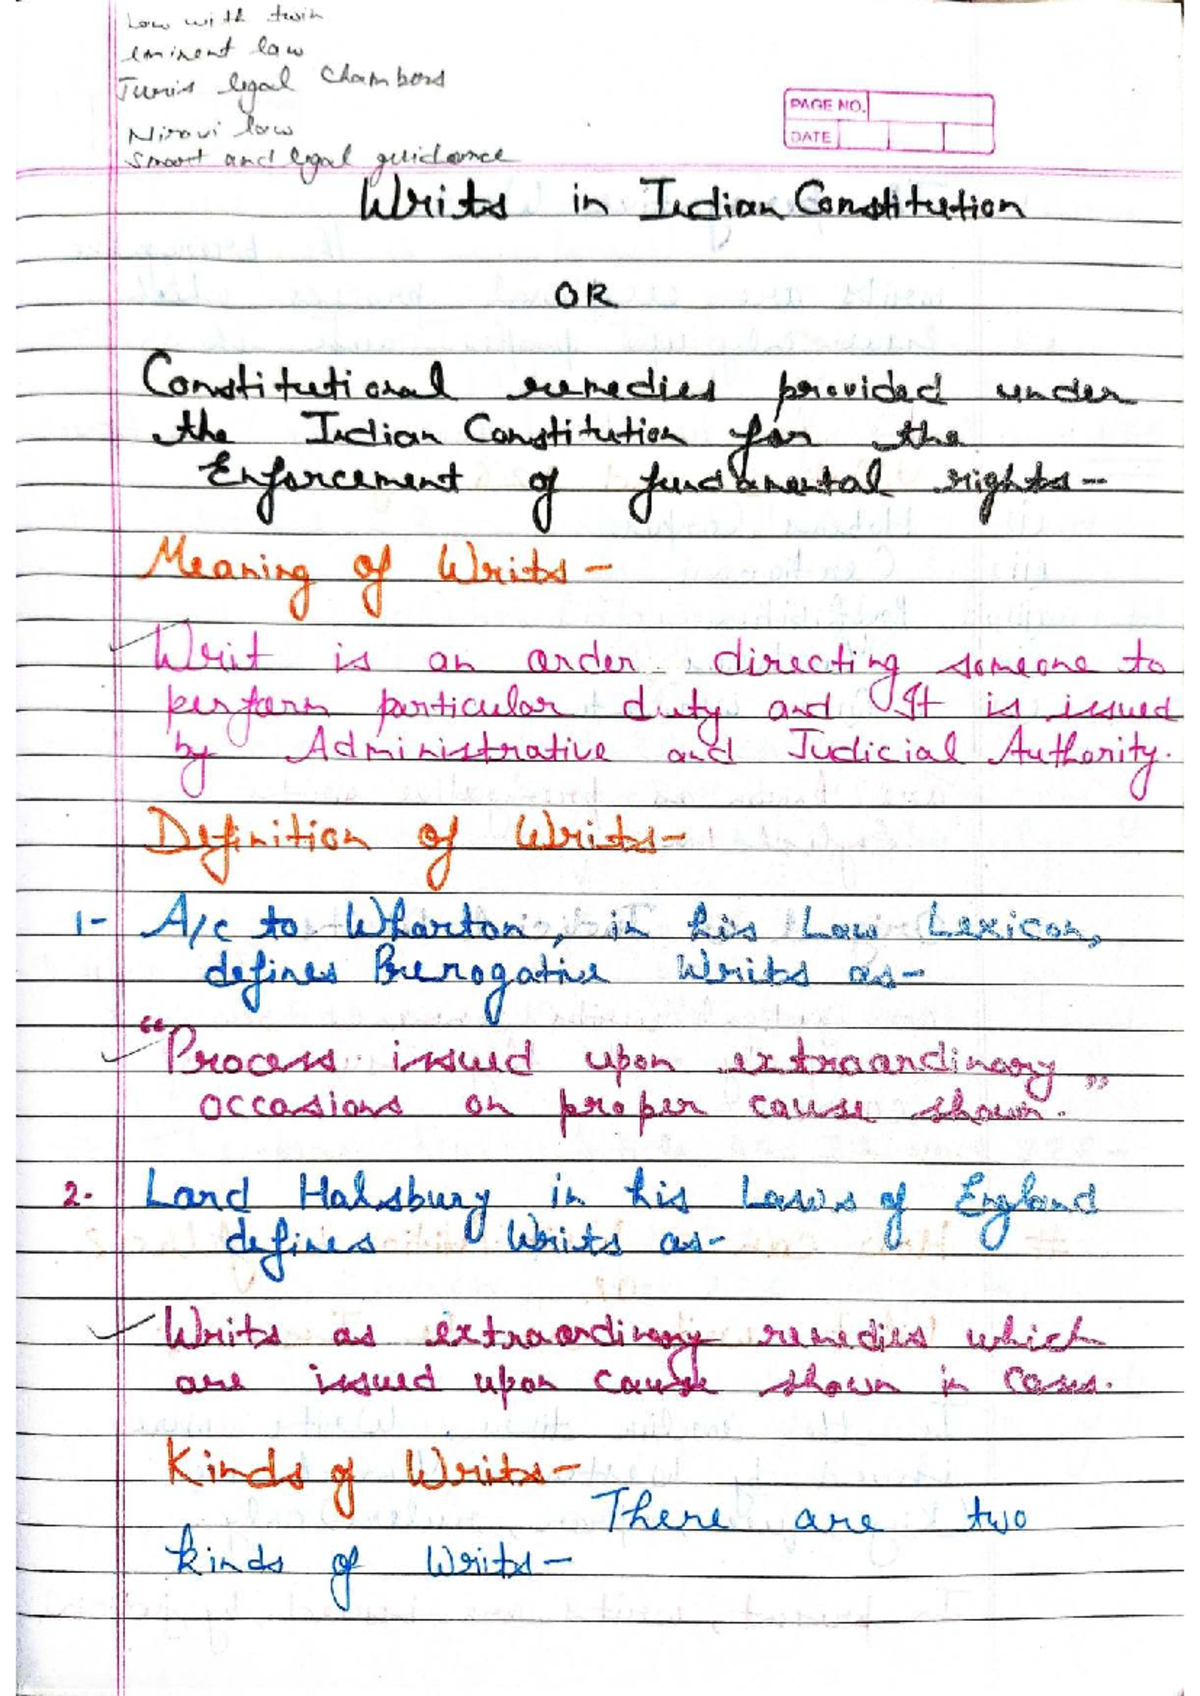 Law with twin
eminent law
Juris legal Chambers
Niravi law
Smart and legal guidance
PAGE NO.
DATE
Writs in Indian Constitution
OR
Constitutional remedies provided under
the Indian Constitution for the
Enforcement of fundamental rights--
Meaning of Writs-
Writ is an order directing someone to
perform particular duty and It is issued
by Administrative and Judicial Authority.
Definition of Writs-
1- A/c to Wharton, in his Law Lexicon,
defines Prerogative Writs as-
"Process issued upon extraordinary
occasions on proper cause shown."
2. Lord Halsbury in his Laws of England
defines Writs as-
Writs as extraordinary remedies which
are issued upon cause shown in cases.
Kinds of Writs-
There are two
kinds of Writs-